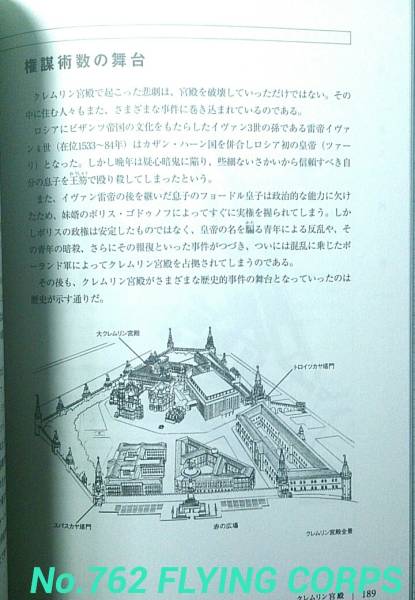 権謀術数の舞台
クレムリン宮殿で起こった悲劇は、宮殿を破壊していっただけではない。その
中に住む人々もまた、さまざまな事件に巻き込まれているのである。
ロシアにビザンツ帝国の文化をもたらしたイヴァン3世の孫である雷帝イヴァ
ン4世（在位1533〜84年）はカザン・ハーン国を併合しロシア初の皇帝（ツァー
リ）となった。しかし晩年は疑心暗鬼に陥り、些細ないさかいから信頼すべき自
分の息子を王笏で殴り殺してしまったという。
また、イヴァン雷帝の後を継いだ息子のフョードル皇子は政治的な能力に欠け
たため、妹婿のボリス・ゴドゥノフによってすぐに実権を握られてしまう。しか
しボリスの政権は安定したものではなく、皇帝の名を騙る青年による反乱や、そ
の青年の暗殺、さらにその報復といった事件がつづき、ついには混乱に乗じたポ
ーランド軍によってクレムリン宮殿を占拠されてしまうのである。
その後も、クレムリン宮殿がさまざまな歴史的事件の舞台となっていったのは
歴史が示す通りだ。
大クレムリン宮殿
トロイツカヤ塔門
スパスカヤ塔門
赤の広場
クレムリン宮殿全景
No.762 FLYING CORPS
クレムリン宮殿
189